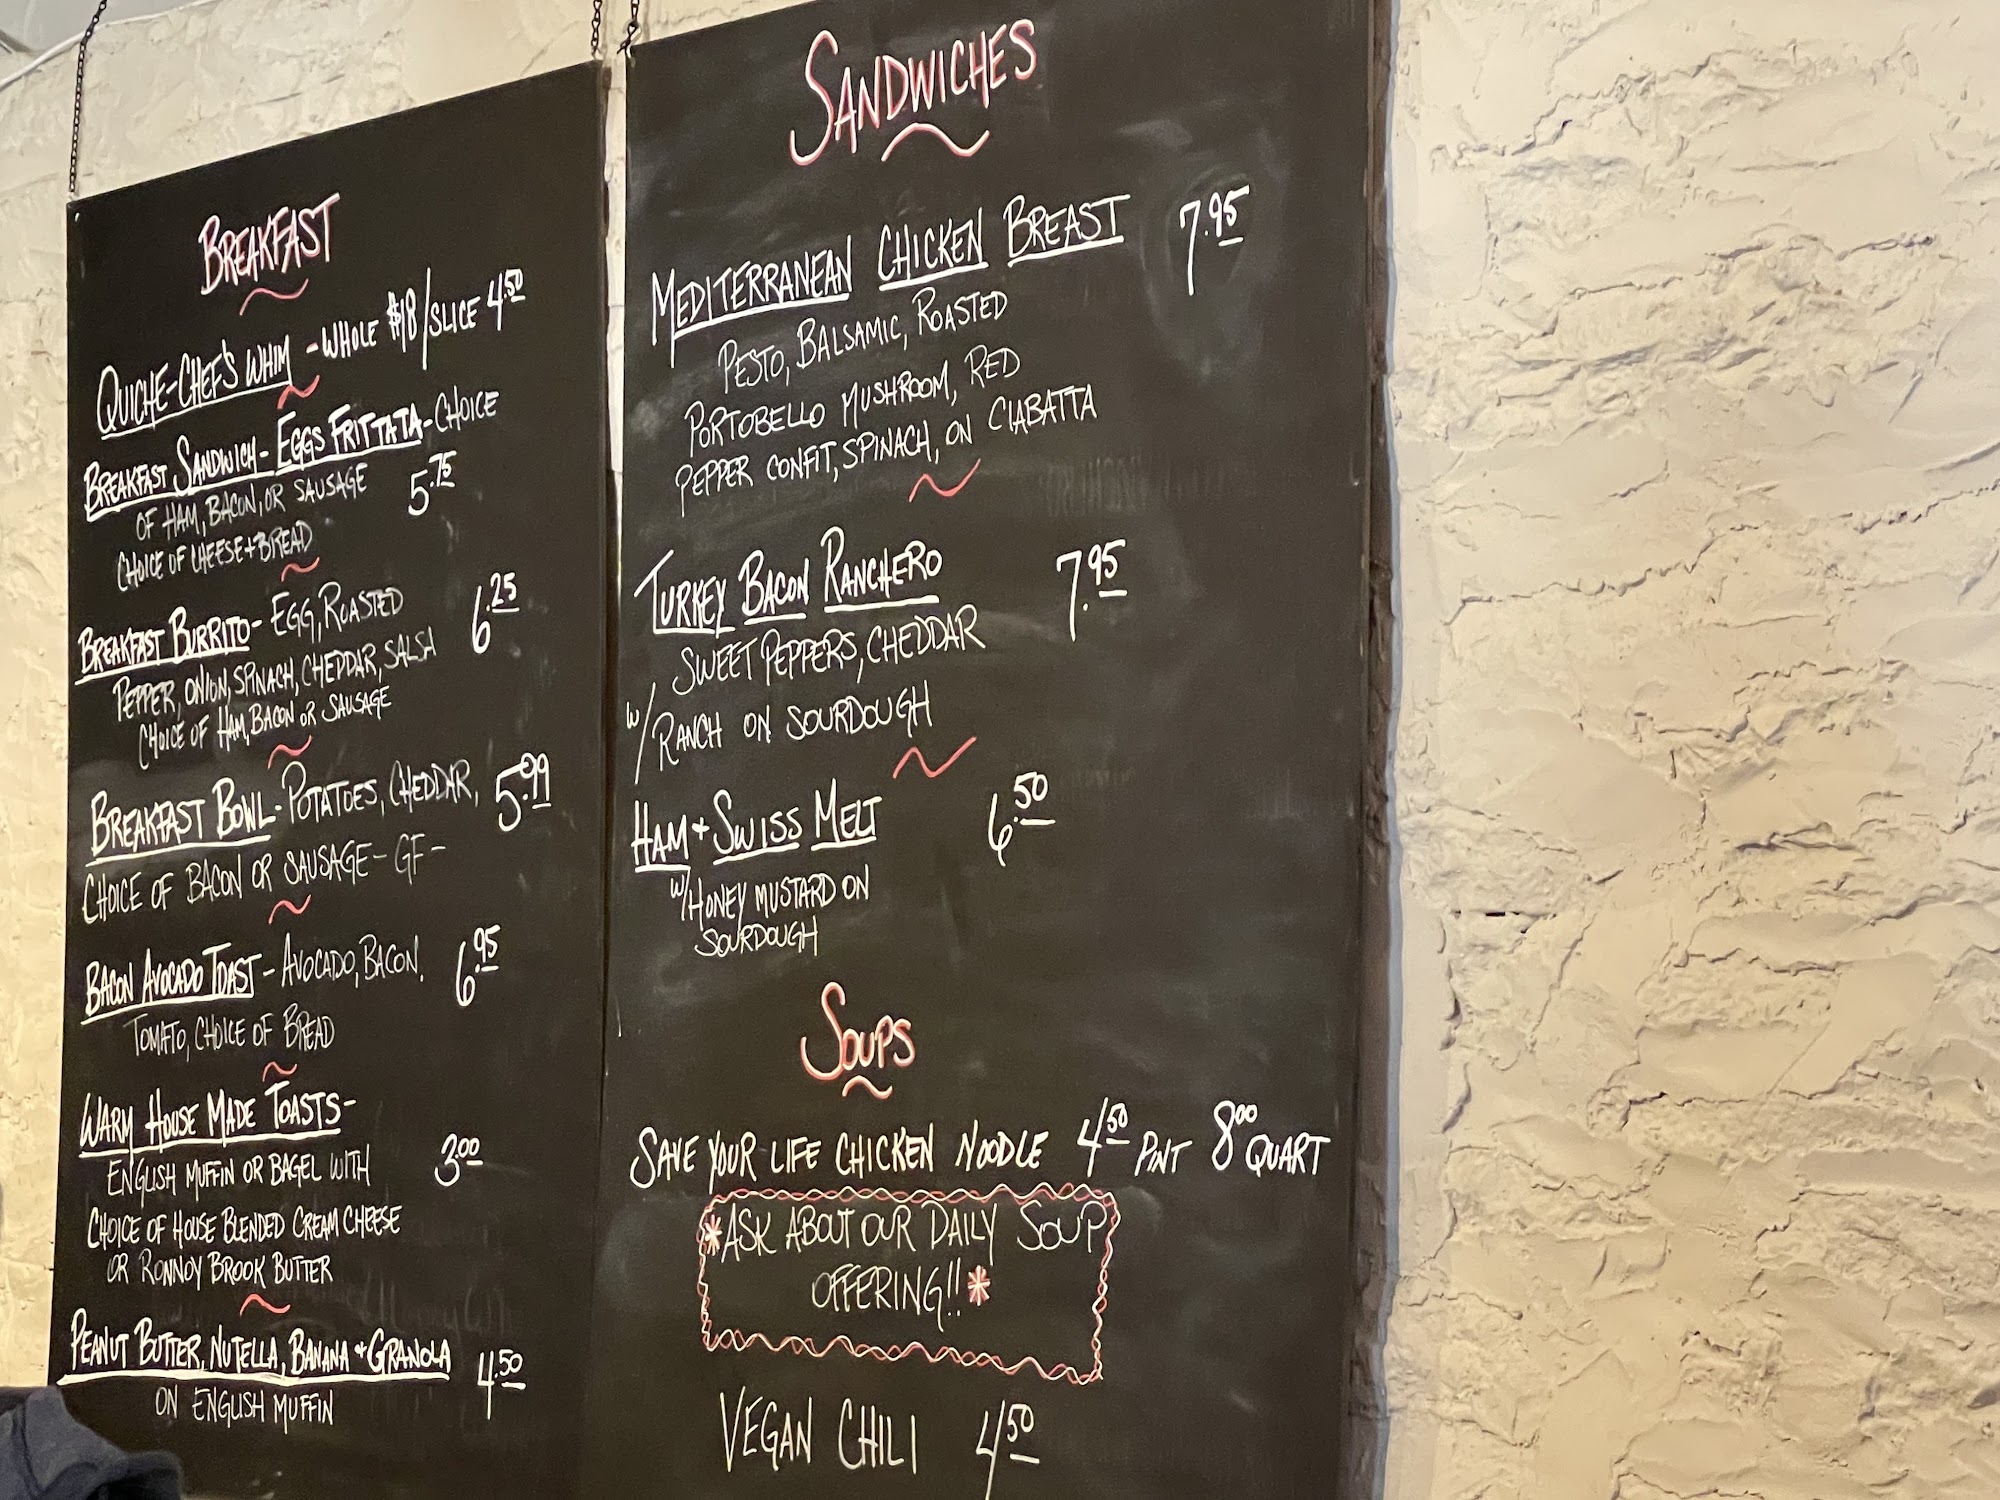 BREAKFAST
QUICHE-CHEF'S WHIM - WHOLE $18/SLICE 4.50
BREAKFAST SANDWICH- EGGS FRITTATA- CHOICE
OF HAM, BACON, OR SAUSAGE 5.75
CHOICE OF CHEESE+BREAD
BREAKFAST BURRITO- EGG, ROASTED 6.25
PEPPER, ONION, SPINACH, CHEDDAR, SALSA
CHOICE OF HAM, BACON OR SAUSAGE
BREAKFAST BOWL- POTATOES, CHEDDAR, 5.99
CHOICE OF BACON OR SAUSAGE- GF-
BACON AVOCADO TOAST- AVOCADO, BACON, 6.95
TOMATO, CHOICE OF BREAD
WARM HOUSE MADE TOASTS-
ENGLISH MUFFIN OR BAGEL WITH 3.00
CHOICE OF HOUSE BLENDED CREAM CHEESE
OR RONNOY BROOK BUTTER
PEANUT BUTTER, NUTELLA, BANANA + GRANOLA
ON ENGLISH MUFFIN 4.50
SANDWICHES
MEDITERRANEAN CHICKEN BREAST 7.95
PESTO, BALSAMIC, ROASTED
PORTOBELLO MUSHROOM, RED
PEPPER CONFIT, SPINACH, ON CIABATTA
TURKEY BACON RANCHERO 7.95
SWEET PEPPERS, CHEDDAR
W/ RANCH ON SOURDOUGH
HAM + SWISS MELT 6.50
W/HONEY MUSTARD ON
SOURDOUGH
SOUPS
SAVE YOUR LIFE CHICKEN NOODLE 4.50 PINT 8.00 QUART
*ASK ABOUT OUR DAILY SOUP
OFFERING!!*
VEGAN CHILI 4.50